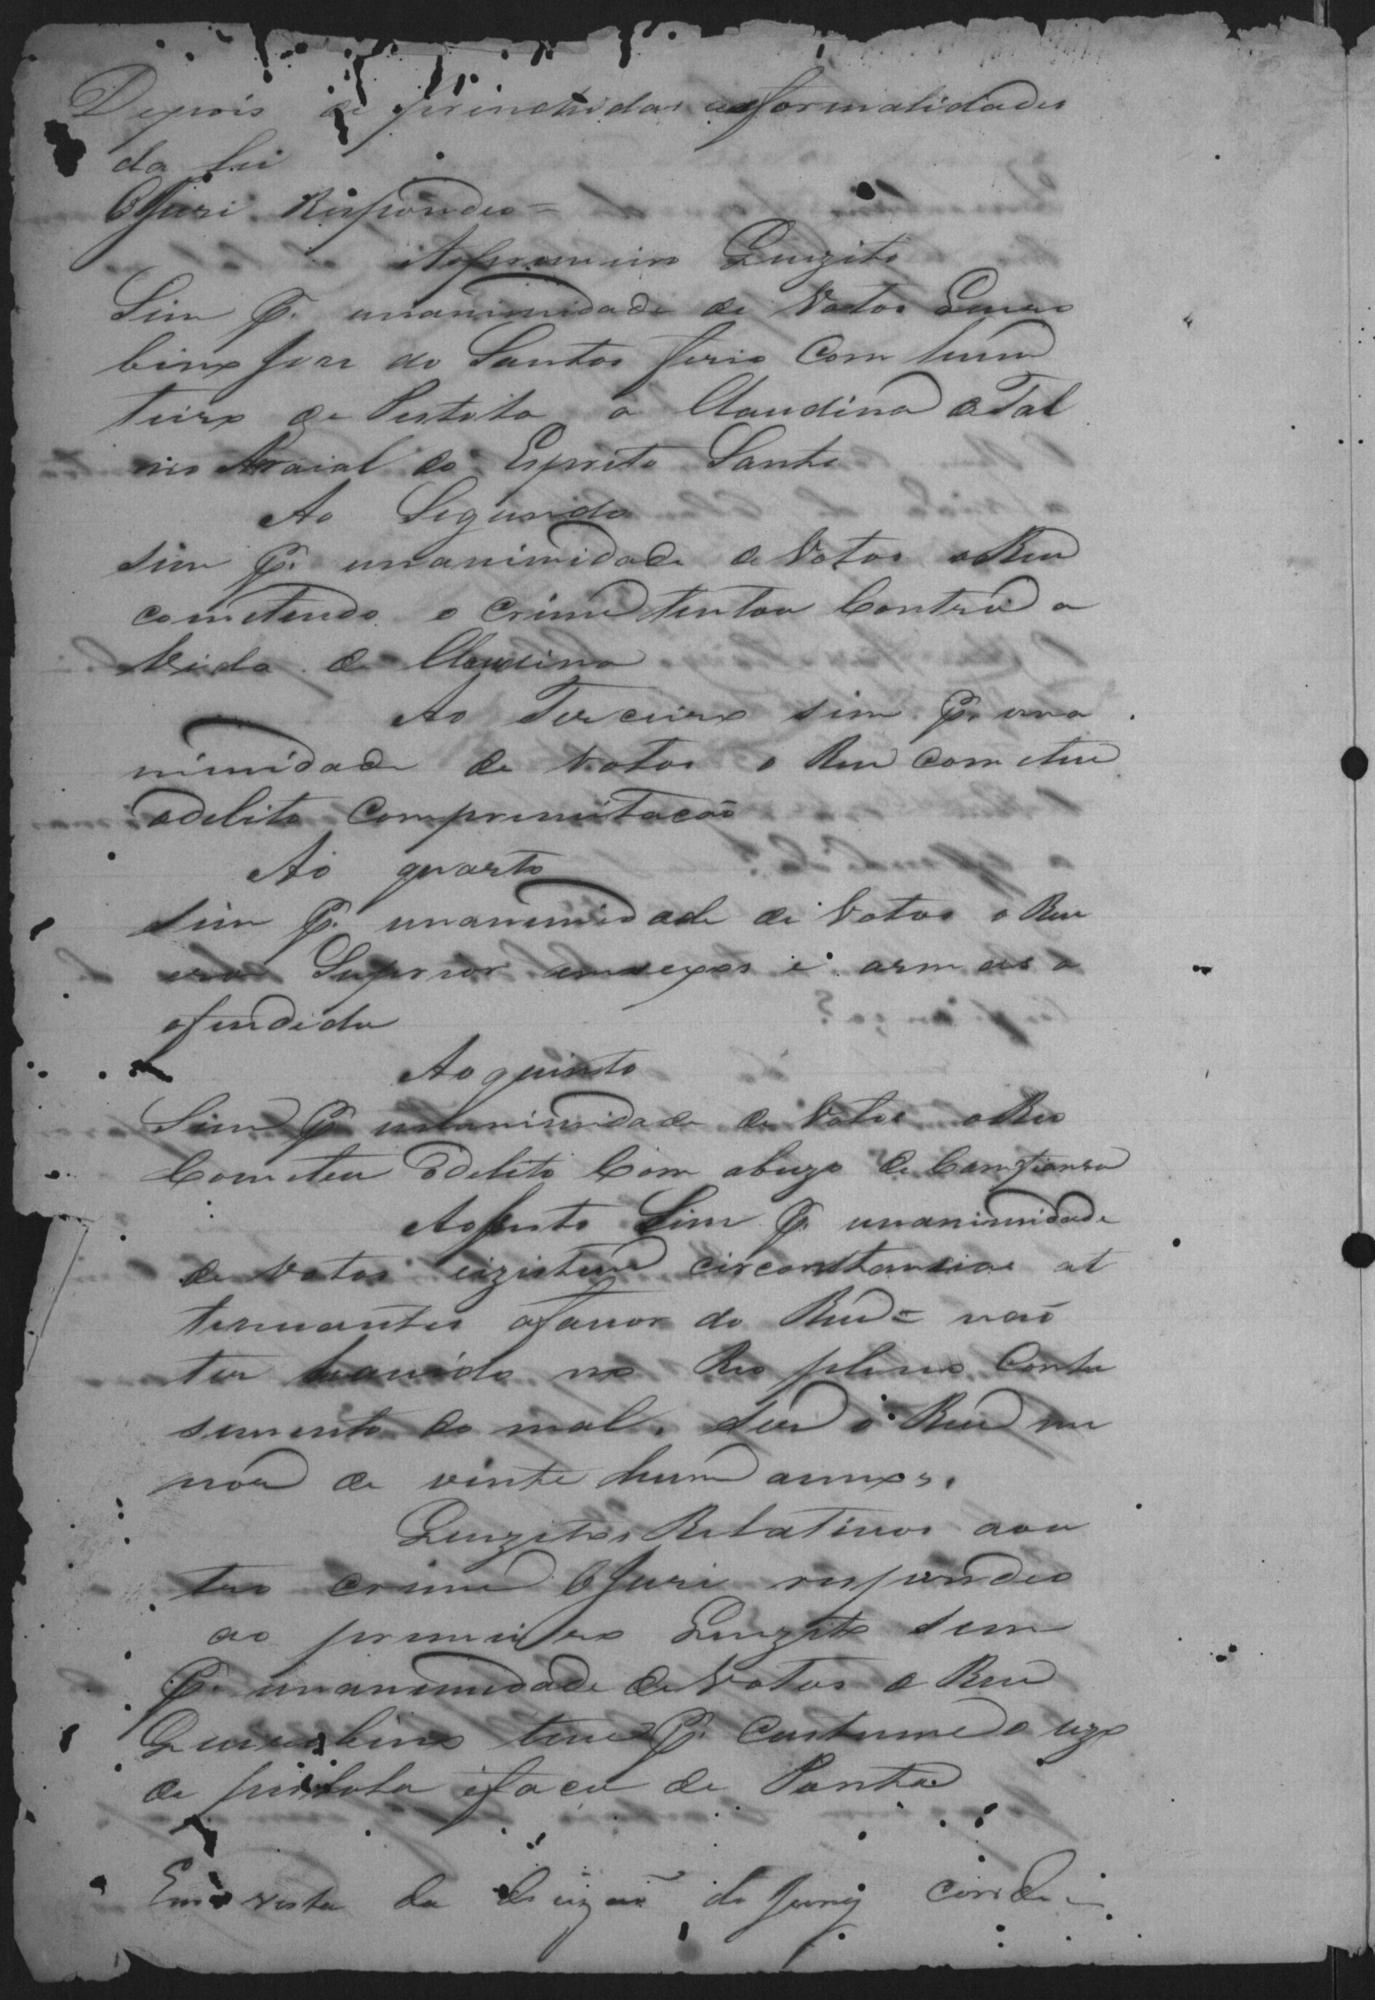 Depois de princhidas as formalidades
da Lei
O Juri Respondeo =
Ao primeiro Quizito
Sim P. unanimidade de Votos Queru
bino Joze do Santos ferio Com hum
teiro de Pistola a Claudina de Tal
no Araial do Esprito Santo
Ao Segundo
Sim P. unanimidade de Votos o Reu
cometendo o crime tentou Contra a
Vida de Claudina
Ao Terceiro sim P. una
nimidade de Votos o Reu cometeu
o delito Com primitação
Ao quarto
Sim P. unanimidade de Votos o Reu
era Suprior em sexos e armas a
ofendida
Ao quinto
Sim P. unanimidade de Votos o Reo
Cometeu o delito Com abuzo de Comfiansa
Ao sesto Sim P. unanimidade
de Votos eizistem circonstancias at
tenuantes afavor do Reu = não
ter havido no Reo pleno Conhe
simento do mal, ser o Reu me
nor de vinte hum annos,
Quizitos Relativos aou
tro crime O Juri respondeo
ao primeiro Quizito sim
P. unanimidade de Votos o Reu
Querubino tem P. custume o uzo
de pistola e faca de Ponta
Em vista da decizão do Jury